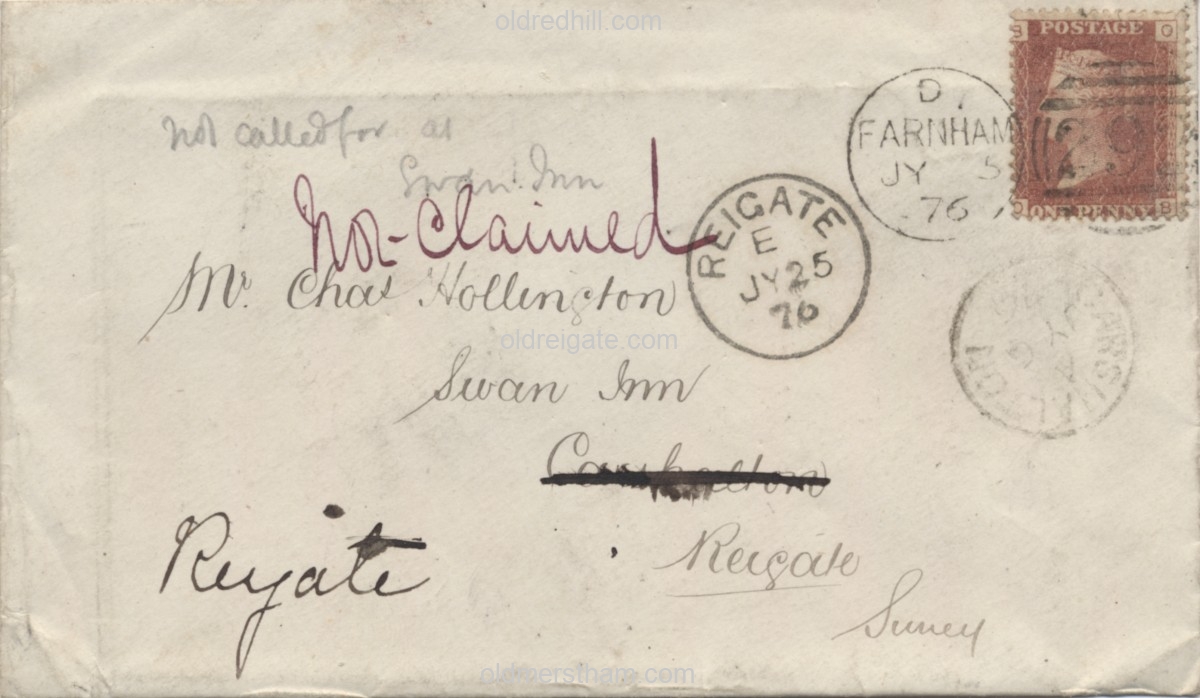 oldredhill.com
POSTAGE
ONE PENNY
D
FARNHAM
JY 5
76
Not called for at
Swan Inn
Not-Claimed
REIGATE
E
JY 25
76
Mr. Chas Hollington
oldreigate.com
CARSHALTON
Swan Inn
Carshalton
Reigate
Reigate
Surrey
oldmerstham.com